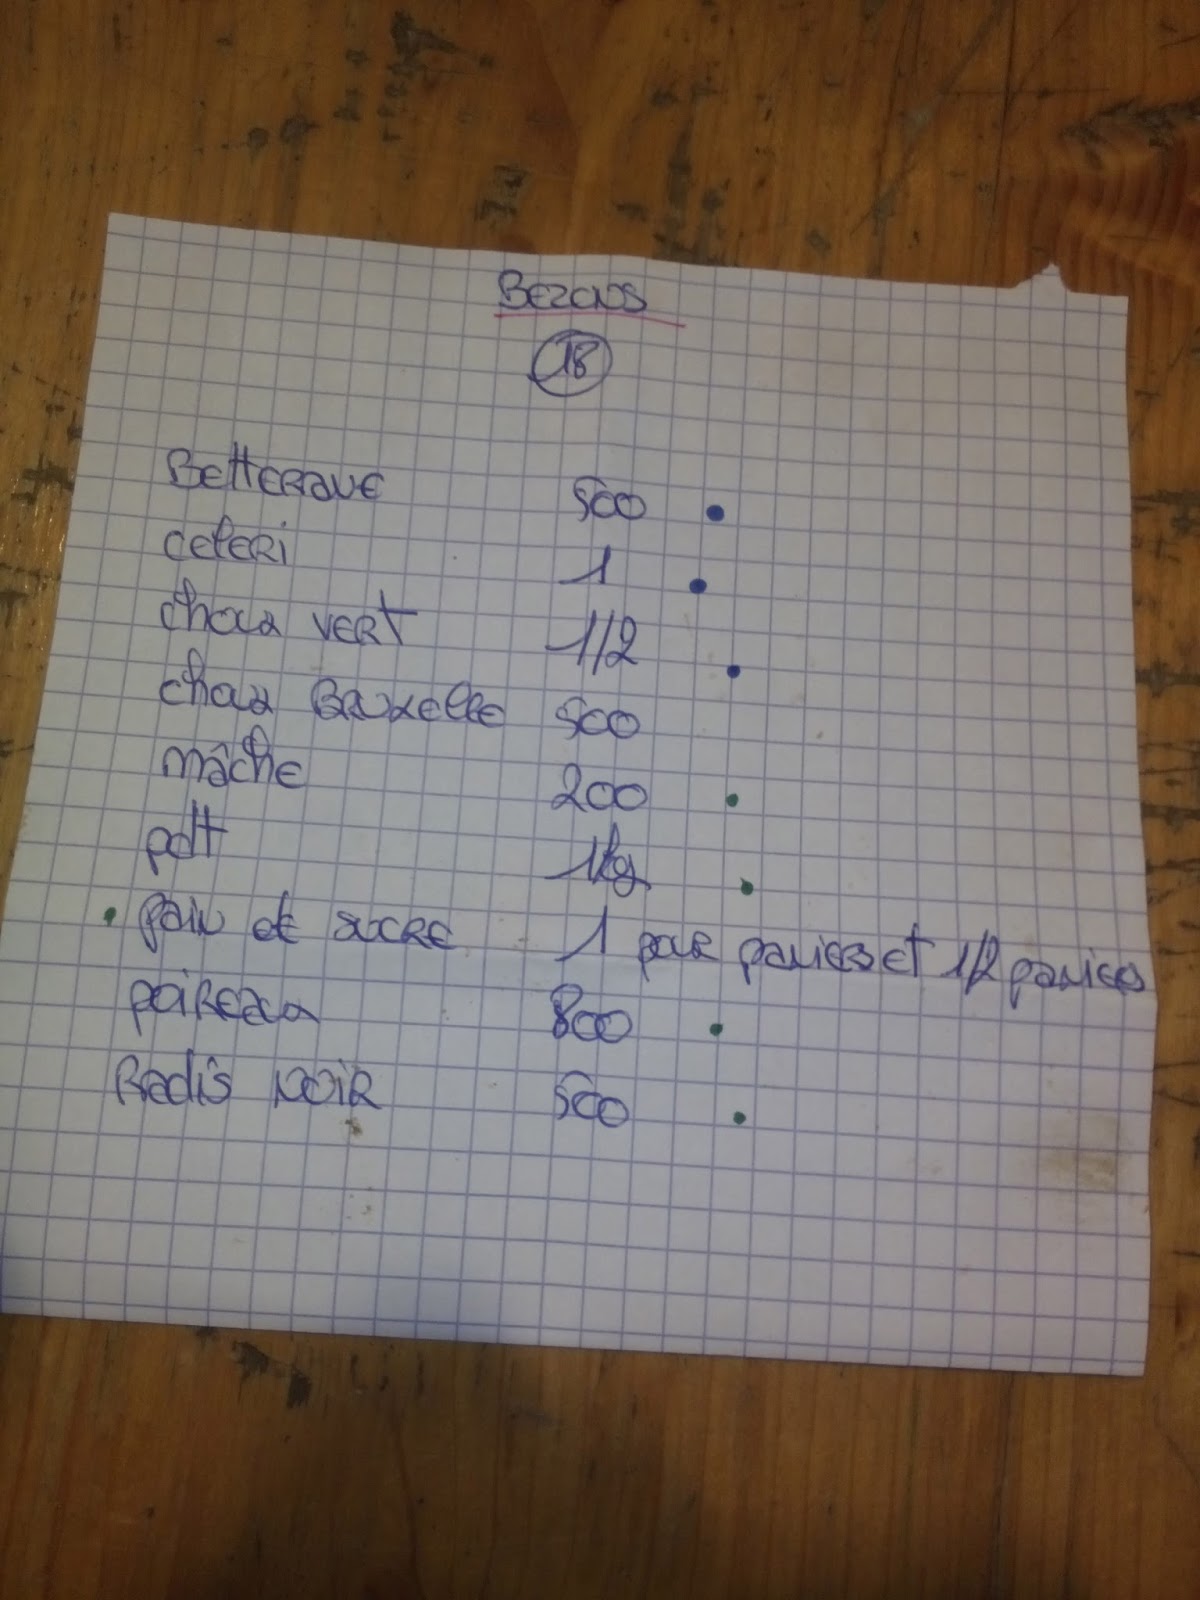 Bezons
18
Betterave 500
celeri 1
choux vert 1/2
choux Bruxelle 500
mâche 200
pdt 1kg
pain de sucre 1 par paniers et 1/2 paniers
poireaux 800
Radis noir 500